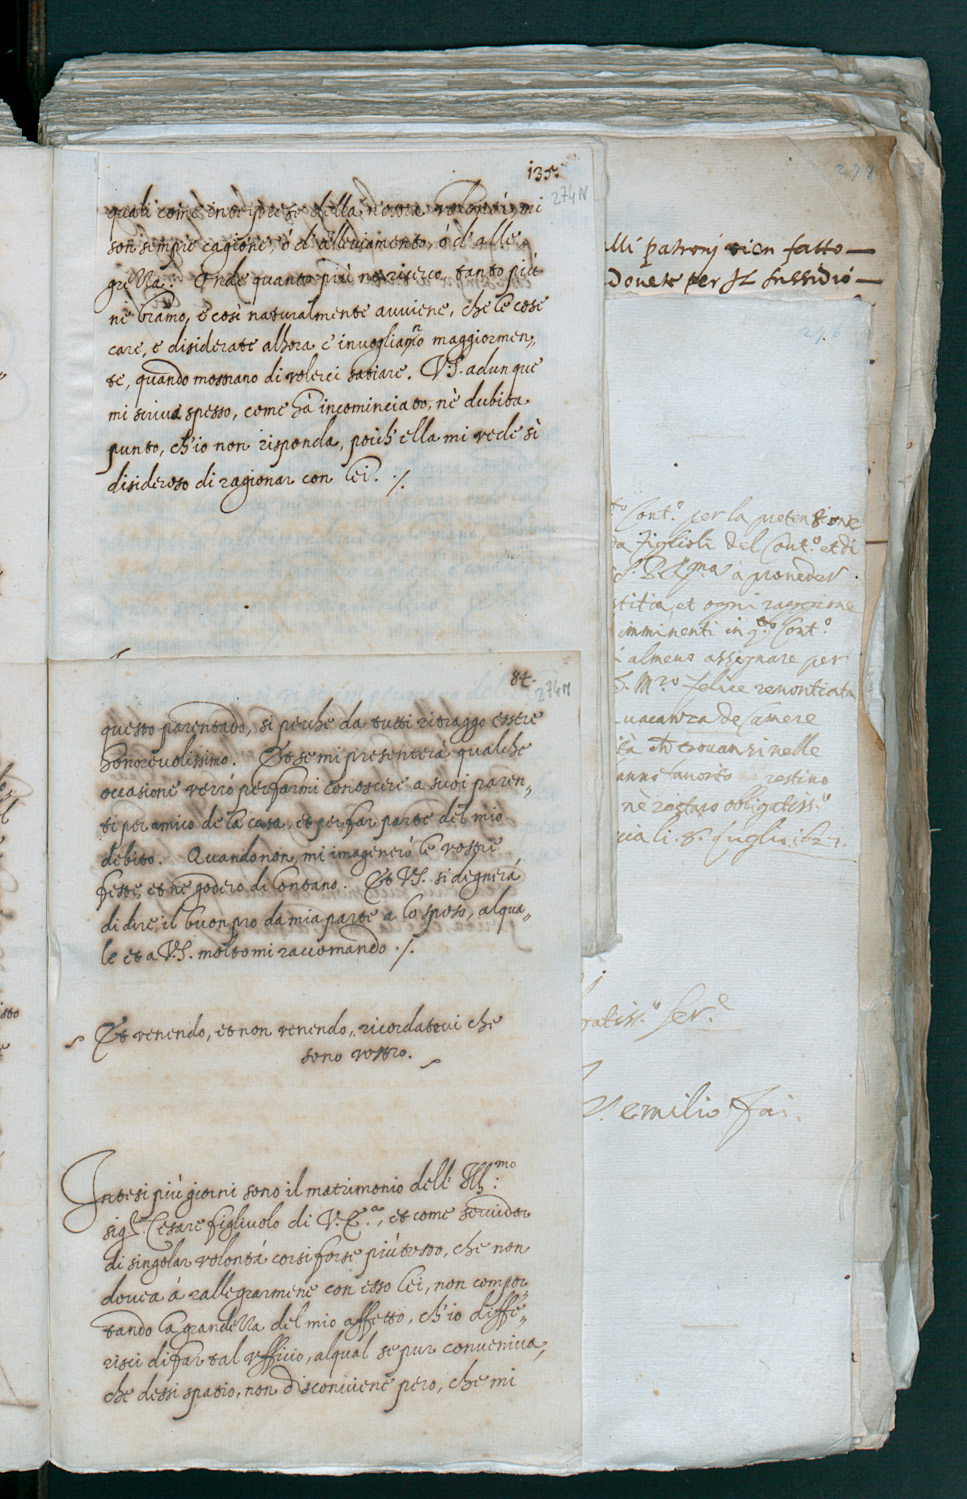 135.
274N
quali come interprete della vostra volontà, mi
son sempre cagione, ó d'alleviamento, ó d'alle-
grezza. Onde quanto più ne ricevo, tanto più
ne bramo, e così naturalmente avviene, che le cose
care, e disiderate alhora c'invogliano maggiormen-
te, quando mostrano di volerci satiare. V.S. adunque
mi scriva spesso, come hà incominciato, nè dubita
punto, ch'io non risponda, poich'ella mi vede sì
disideroso di ragionar con lei. ./.
84.
274M
questo parentado, si perche da tutti ritraggo essere
honorevolissimo. Et se mi presenterà qualche
occasione verrò per farmi conoscere a suoi paren-
ti per amico de la casa, et per far parte del mio
debito. Quando non, mi imagenerò le vostre
feste, et ne goderò di lontano. Et V.S. si degnerà
di dire il buon pro da mia parte a lo sposo, al qua-
le et a V.S. molto mi raccomando ./.
Et venendo, et non venendo, ricordatevi che
sono vostro.
Intesi più giorni sono il matrimonio dell' Ill.mo
sig.r Cesare figliuolo di V.E.a, et come servidor
di singolar volontá corsi forse più tosto, che non
dovea á rallegrarmene con esso lei, non compor-
tando la grandezza del mio affetto, ch'io diffe-
risci di far tal ufficio, al qual se pur conveniva,
che dessi spatio, non disconviene però, che mi
278
alli patroni vien fatto —
Dovete per Il sussidio —
276
Cont.o per la pretensione
figlioli del Cont.o et di
à proveder
stitia, et ogni raggione
imminenti in q.to Cont.o
almeno assignare per
M.ro felice renontiata
vacanza de Camere
trovansi nelle
favorito restino
nè resteró obligatiss.o
li. 8. luglio
ser.e
emilio fai.